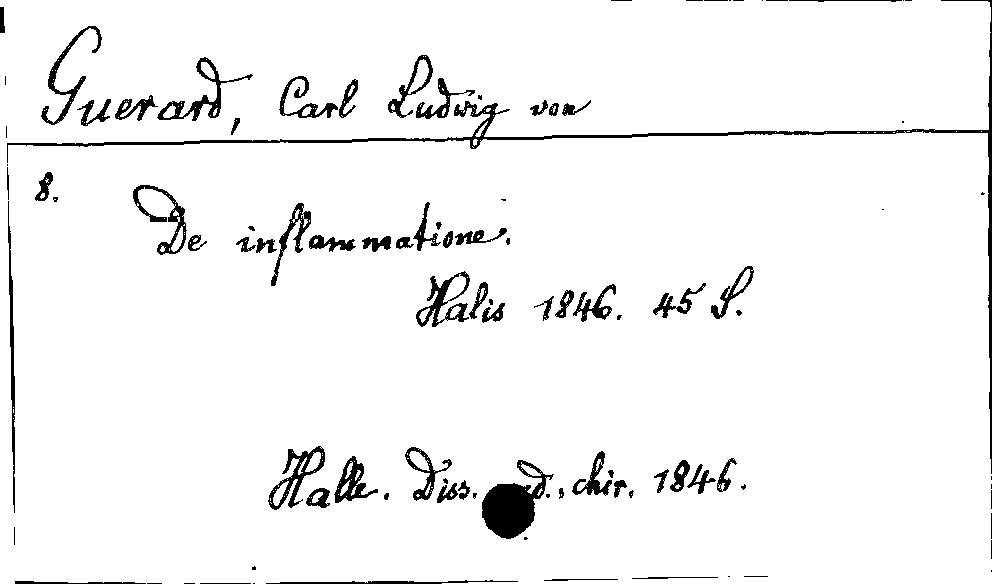 Guerard, Carl Ludwig von
8.
De inflammatione.
Halis 1846. 45 S.
Halle. Diss. ed., chir. 1846.